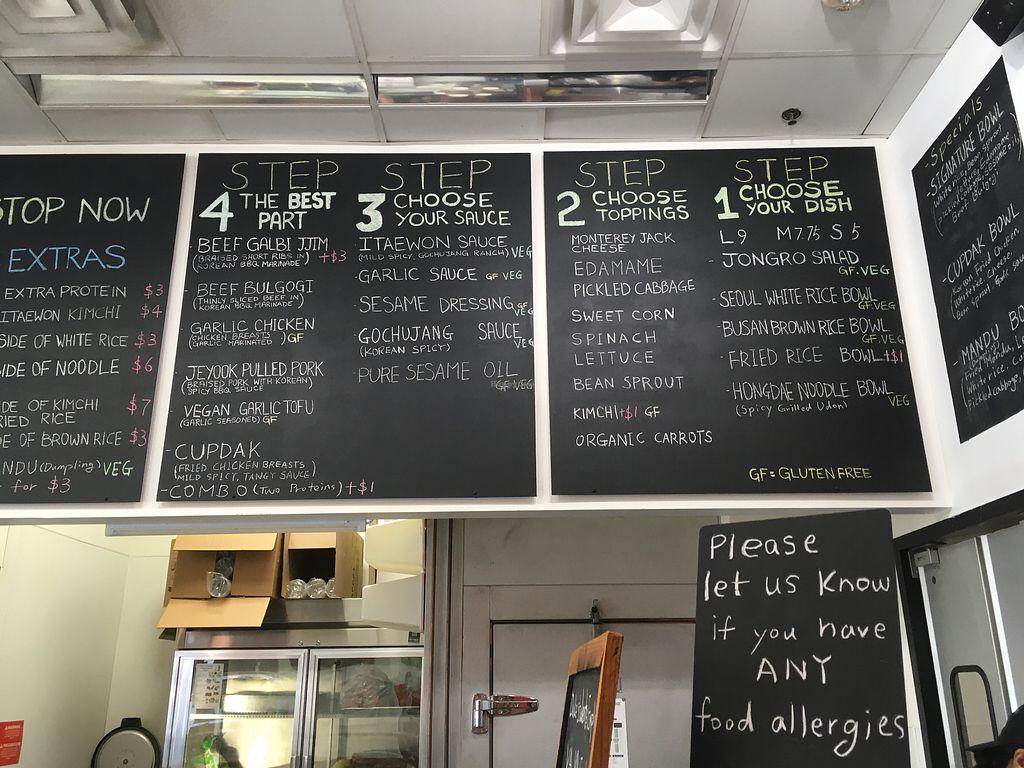 STOP NOW
EXTRAS
EXTRA PROTEIN $3
ITAEWON KIMCHI $4
SIDE OF WHITE RICE $3
SIDE OF NOODLE $6
SIDE OF KIMCHI $7
FRIED RICE
SIDE OF BROWN RICE $3
MANDU (Dumpling) VEG
for $3
STEP
4 THE BEST
PART
BEEF GALBI JJIM +$3
(BRAISED SHORT RIBS IN
KOREAN BBQ MARINADE)
BEEF BULGOGI
(THINLY SLICED BEEF IN
KOREAN BBQ MARINADE)
GARLIC CHICKEN
(CHICKEN BREASTS,
GARLIC MARINATED) GF
JEYOOK PULLED PORK
(BRAISED PORK WITH KOREAN)
SPICY BBQ SAUCE
VEGAN GARLIC TOFU
(GARLIC SEASONED) GF
CUPDAK
(FRIED CHICKEN BREASTS)
MILD SPICY, TANGY SAUCE)
-COMBO (Two Proteins) +$1
STEP
3 CHOOSE
YOUR SAUCE
ITAEWON SAUCE
(MILD SPICY, GOCHUJANG RANCH) VEG
GARLIC SAUCE GF VEG
SESAME DRESSING GF
VEG
GOCHUJANG SAUCE
(KOREAN SPICY) VEG
PURE SESAME OIL GF VEG
STEP
2 CHOOSE
TOPPINGS
MONTEREY JACK
CHEESE
EDAMAME
PICKLED CABBAGE
SWEET CORN
SPINACH
LETTUCE
BEAN SPROUT
KIMCHI +$1 GF
ORGANIC CARROTS
STEP
1 CHOOSE
YOUR DISH
L 9 M 7.75 S 5
- JONGRO SALAD
GF.VEG
- SEOUL WHITE RICE BOWL
GF.VEG
- BUSAN BROWN RICE BOWL
GF VEG
- FRIED RICE BOWL +$1
- HONGDAE NOODLE BOWL
(Spicy Grilled Udon) VEG
GF = GLUTEN FREE
- Specials -
-SIGNATURE BOWL
-CUPDAK BOWL
-MANDU BOWL
Please
let us know
if you have
ANY
food allergies